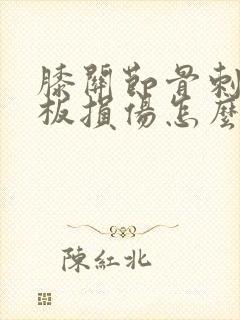 膝關節骨刺
板損傷怎麼
陳紅北